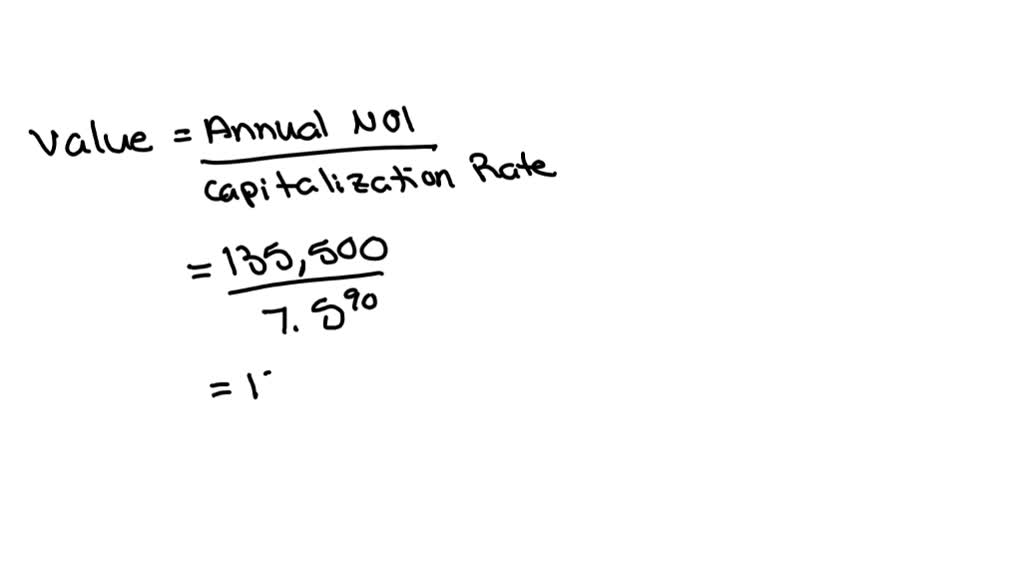 Value = Annual NOI
Capitalization Rate
= 135,500
7.5%
= 1